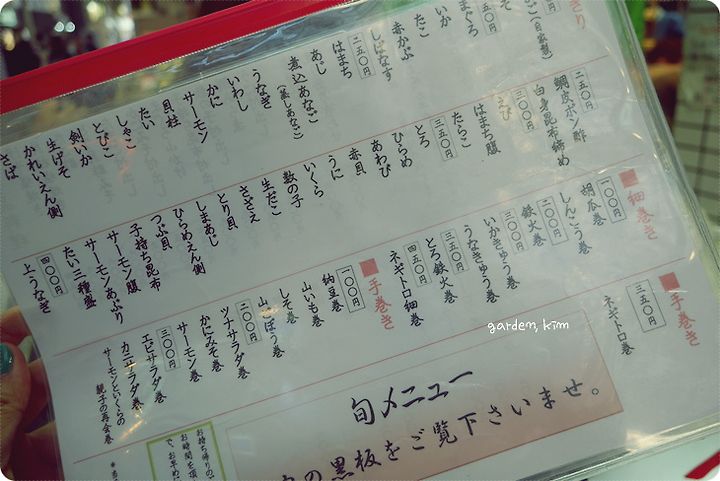 ぎり
二五〇円
こ(自家製)
そ
二五〇円
まぐろ
いか
たこ
赤かぶ
しばなす
二五〇円
はまち
あじ
煮込あなご
(蒸しあなご)
うなぎ
いわし
かに
サーモン
貝柱
たい
しゃこ
とびこ
剣いか
生げそ
かれいえん側
さば
二五〇円
鯛皮ポン酢
白身昆布締め
三〇〇円
えび
はまち腹
たらこ
三五〇円
とろ
ひらめ
あわび
赤貝
うに
いくら
数の子
生だこ
さざえ
とり貝
しまあじ
ひらめえん側
つぶ貝
子持ち昆布
サーモン腹
サーモンあぶり
たい三種盛
四〇〇円
上うなぎ
■細巻き
一〇〇円
胡瓜巻
しんこう巻
二〇〇円
鉄火巻
三〇〇円
いかきゅう巻
うなきゅう巻
三五〇円
とろ鉄火巻
四五〇円
ネギトロ細巻
■手巻き
一〇〇円
納豆巻
山いも巻
しそ巻
山ごぼう巻
二〇〇円
ツナサラダ巻
かにみそ巻
サーモン巻
三〇〇円
エビサラダ巻
カニサラダ巻
サーモンといくらの
親子の再会巻
■手巻き
三五〇円
ネギトロ巻
旬メニュー
の黒板をご覧下さいませ。
お持ち帰りの
お時間を頂
で、お早め
garden, kim